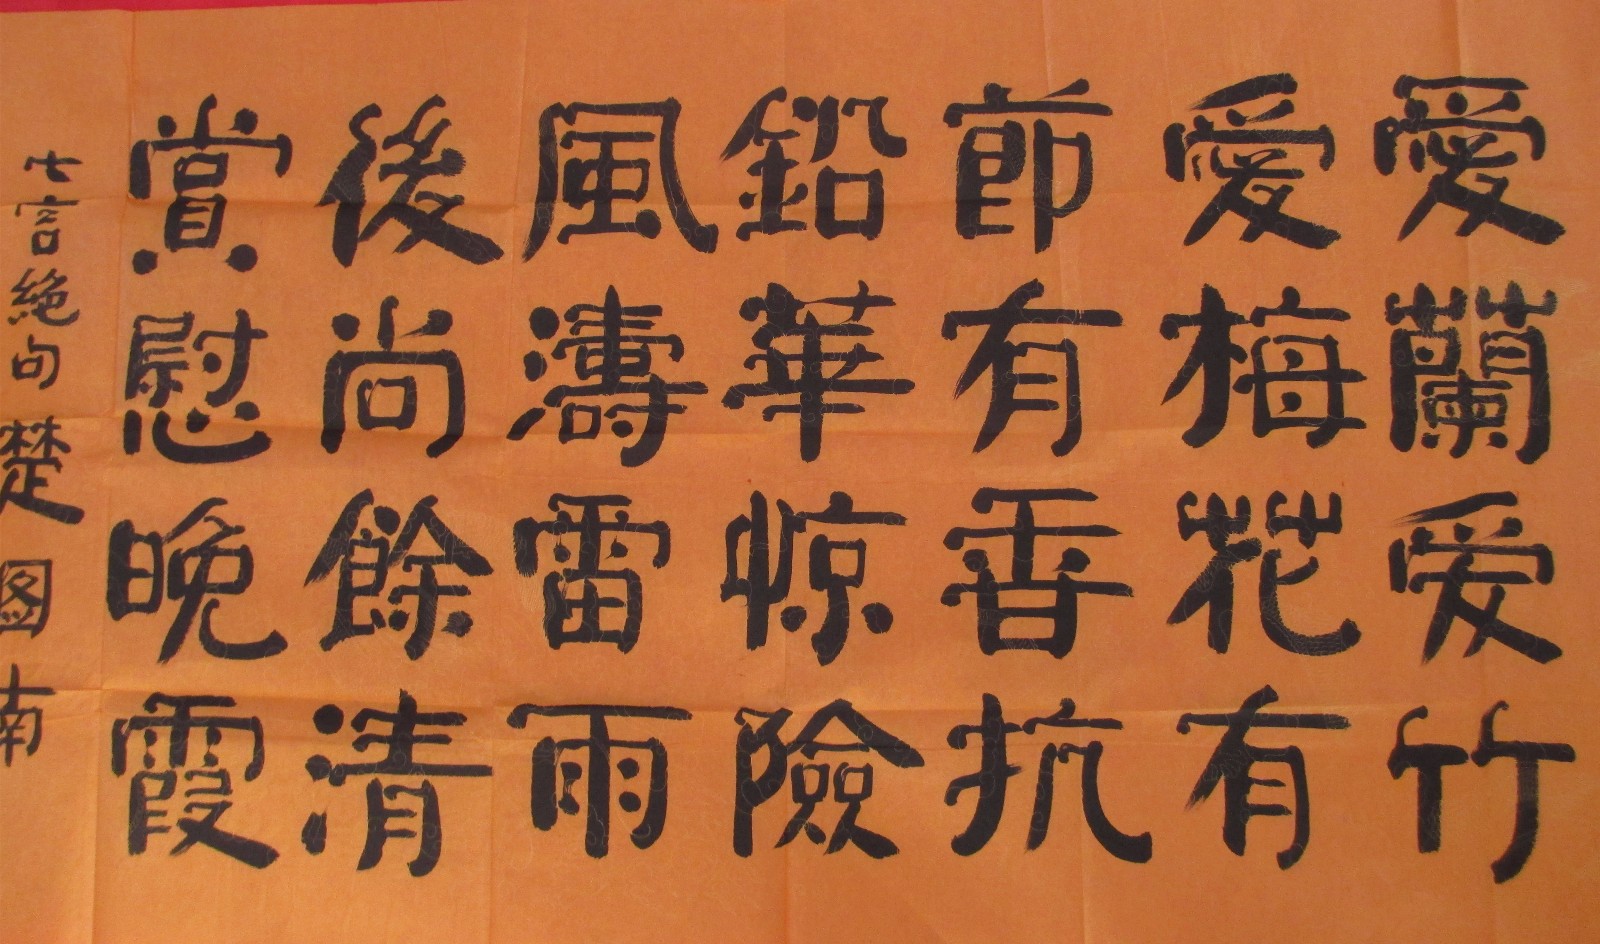 愛蘭爱竹
愛梅花有
節有香抗
鉛華惊險
風濤雷雨
後尚餘清
賞慰晚霞
七言絶句
楚图南